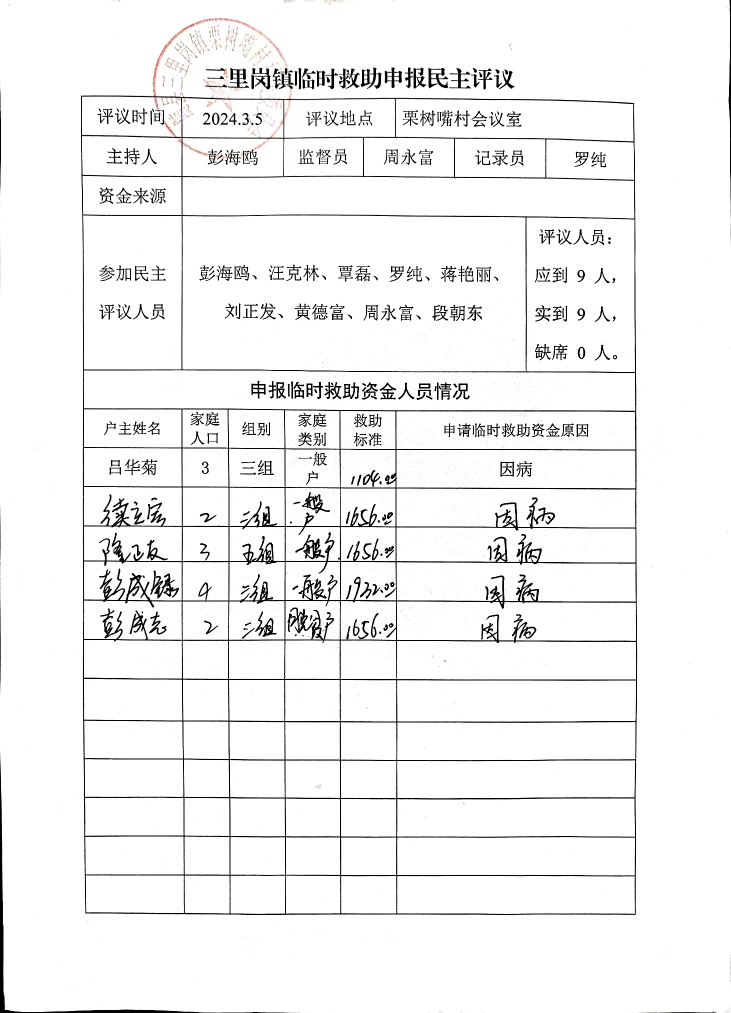 三里岗镇临时救助申报民主评议
评议时间 2024.3.5 评议地点 栗树嘴村会议室
主持人 彭海鸥 监督员 周永富 记录员 罗纯
资金来源
参加民主
评议人员
彭海鸥、汪克林、覃磊、罗纯、蒋艳丽、
刘正发、黄德富、周永富、段朝东
评议人员：
应到 9 人，
实到 9 人，
缺席 0 人。
申报临时救助资金人员情况
户主姓名 家庭人口 组别 家庭类别 救助标准 申请临时救助资金原因
吕华菊 3 三组 一般户 1104.00 因病
2 三组 一般户 1656.00 因病
隆正友 3 五组 一般户 1656.00 因病
彭成 4 三组 一般户 1932.00 因病
彭成志 2 三组 脱贫户 1656.00 因病
三里岗镇栗树嘴村